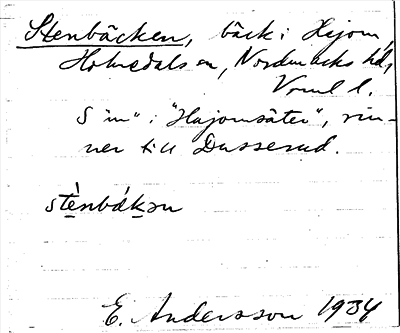 Stenbäcken, bäck i Hajom,
Holmedals sn, Nordmarks hd,
Vrml l.
S im" i "Hajomsäter", rin-
ner till Dusserud.
stènbákən
E. Andersson 1934